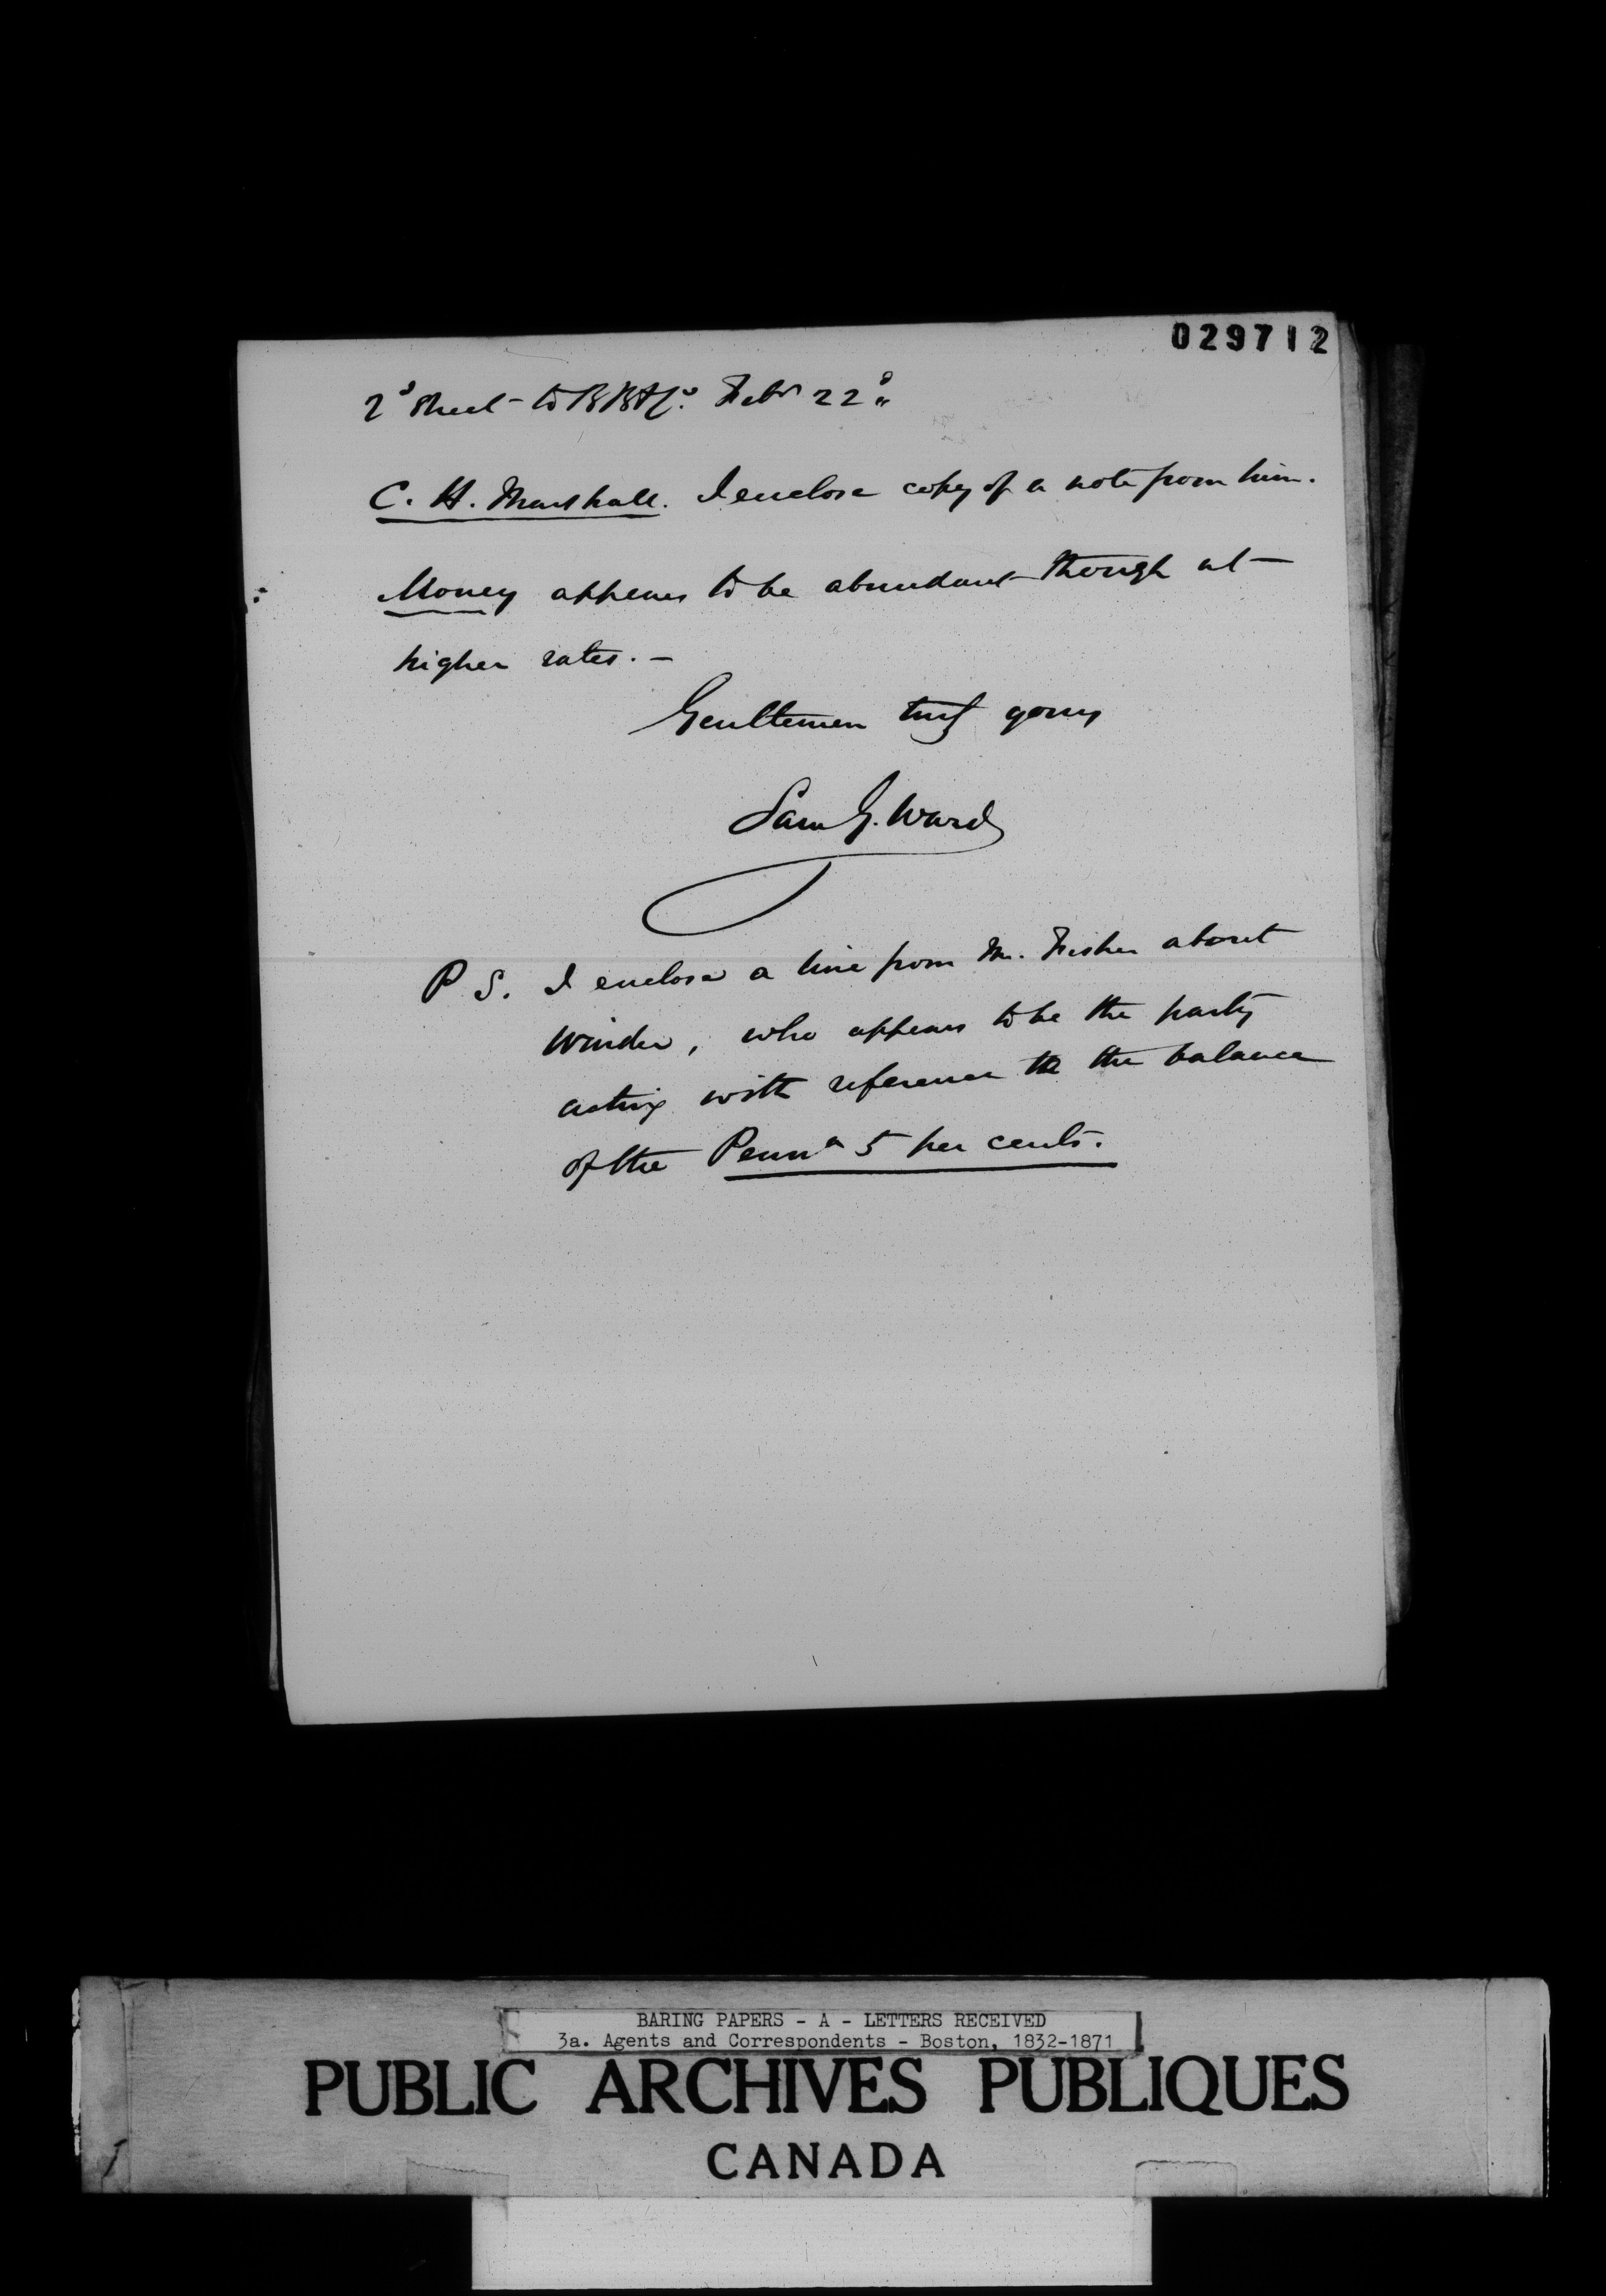 029712
2d Sheet - to BB&Co. Feby 22d
C. H. Marshall. I enclose copy of a note from him.
Money appears to be abundant though at
higher rates. -
Gentlemen truly yours
Sam G. Ward
P S. I enclose a line from Mr. Fisher about
Winder, who appears to be the party
acting with reference to the balance
of the Penna 5 per cents.
BARING PAPERS - A - LETTERS RECEIVED
3a. Agents and Correspondents - Boston, 1832-1871
PUBLIC ARCHIVES PUBLIQUES
CANADA